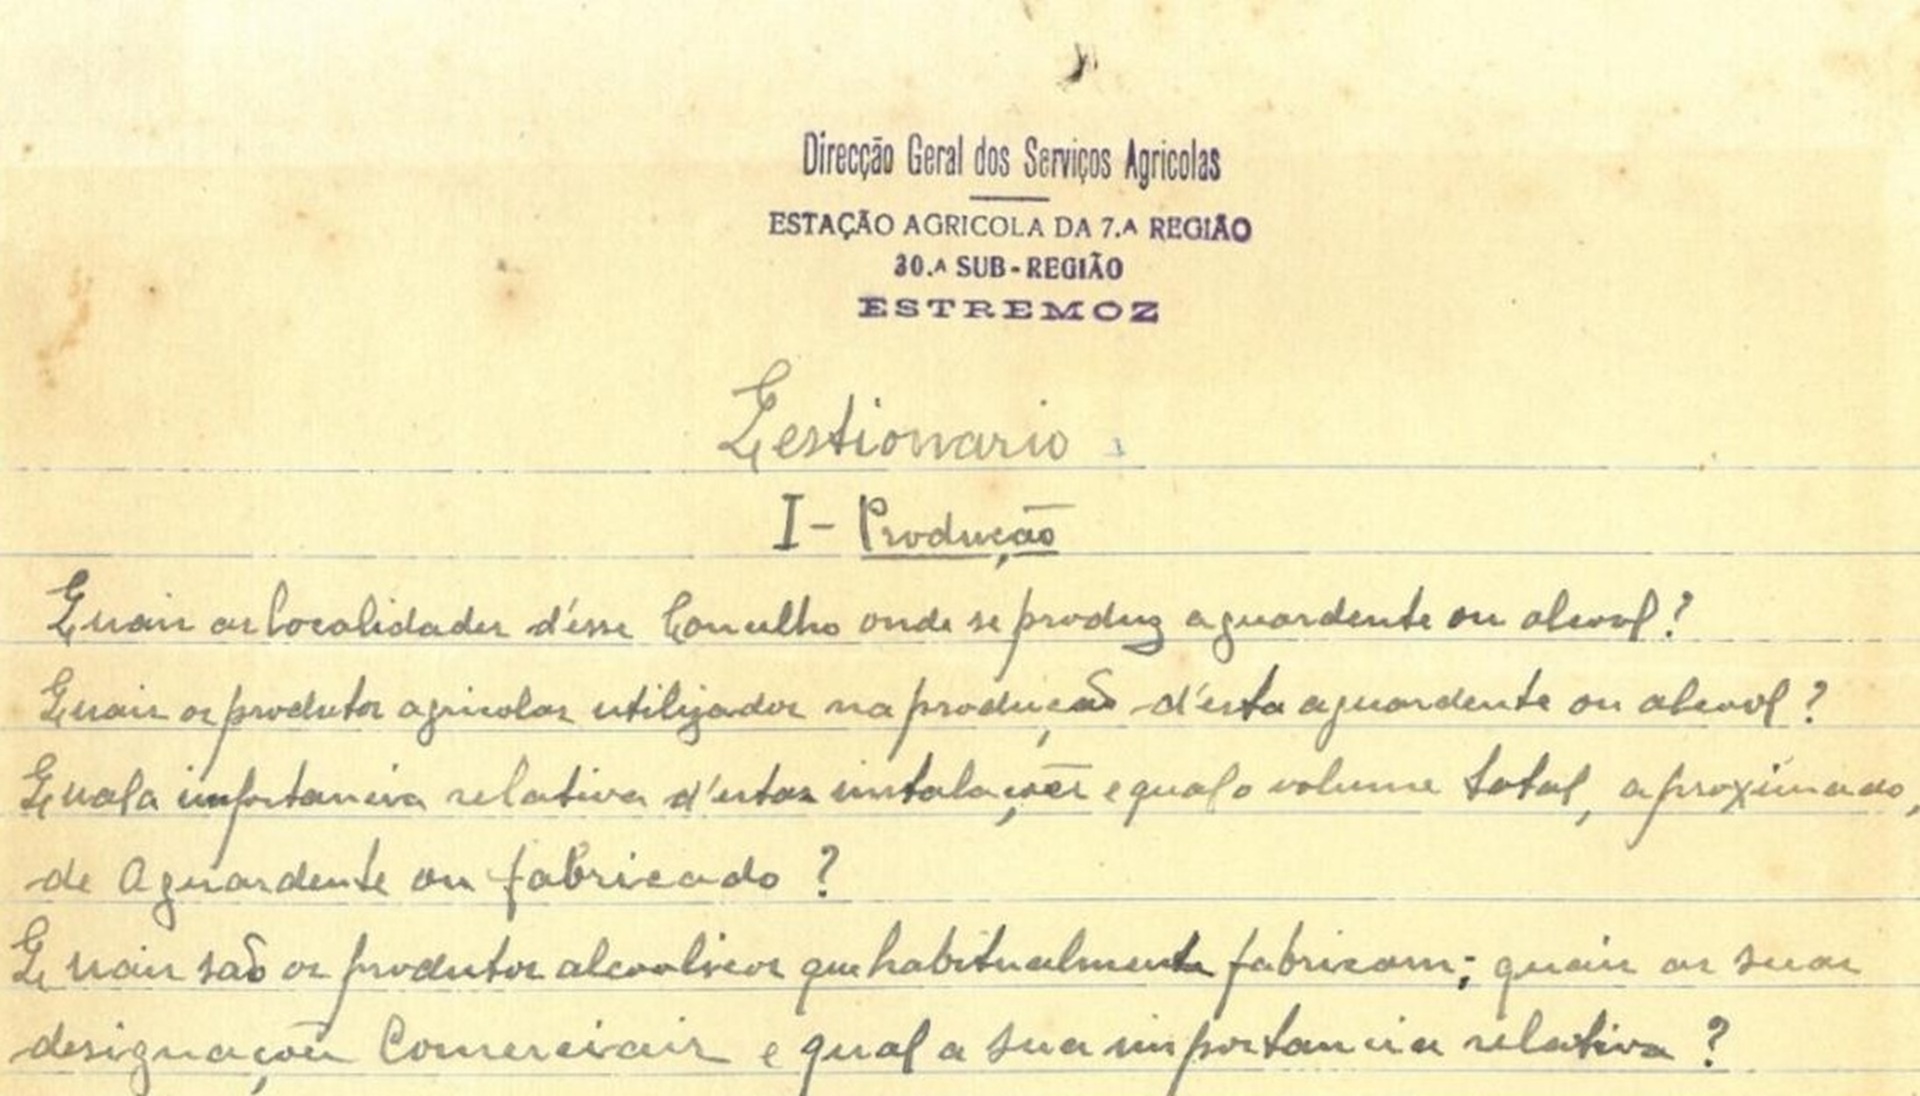 Direcção Geral dos Serviços Agricolas
ESTAÇÃO AGRICOLA DA 7.A REGIÃO
30.A SUB-REGIÃO
ESTREMOZ
Qestionario
I - Produção
Quais as localidades d'ésse Concelho onde se produz aguardente ou alcool?
Quais os produtos agricolas utilizados na produção d'esta aguardente ou alcool?
Qual a importancia relativa d'estas instalações e qual o volume total, aproximado,
de Aguardente ou fabricado?
Quais são os produtos alcoolicos que habitualmente fabricam; quais as suas
designações Comerciais e qual a sua importancia relativa?